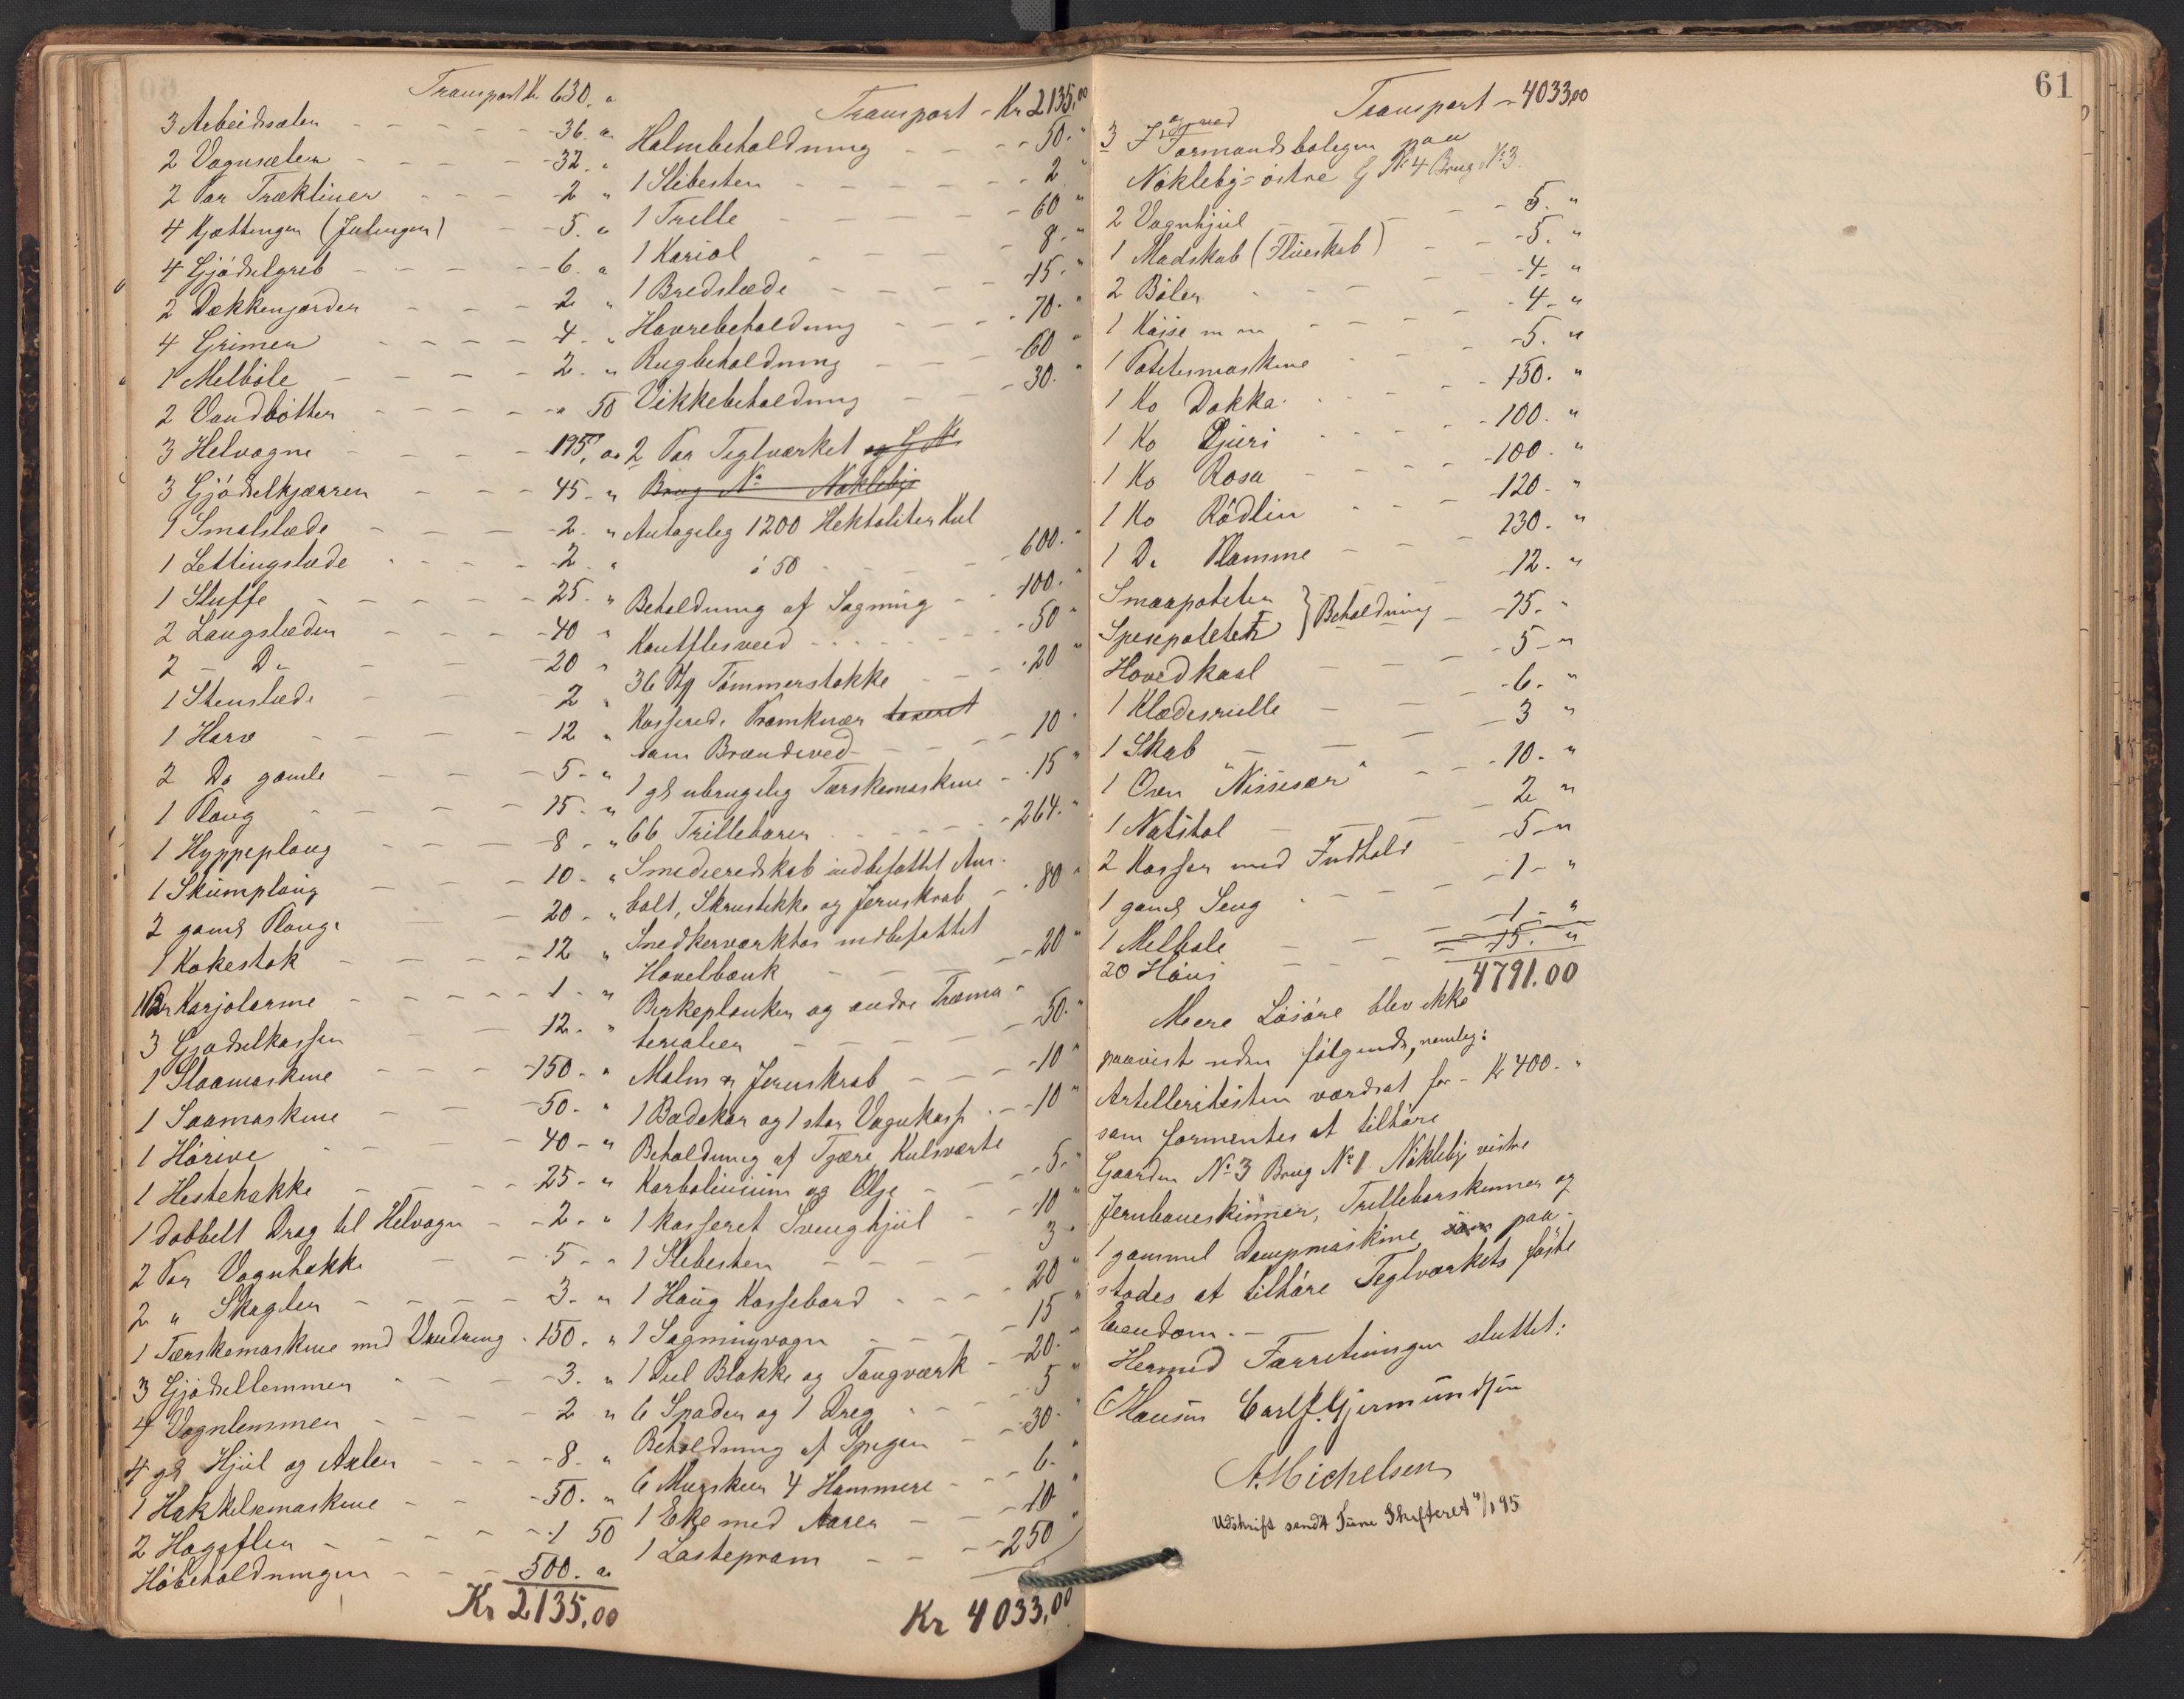 Transport Kr 630. "
3 Arbeidsæler - - - - - 36. "
2 Vognsæler - - - - 32. "
2 Par Træktliner - - - 2 "
4 Kjættinger (Julinger) - - 5. "
4 Gjödselgreb - - - - 6. "
2 Dækkengjorder - - - 2 "
4 Grimer - - - - 4. "
1 Melböle - - - - 2. "
2 Vandbøtter - - - - " 50
3 Helvogne - - - - 195, "
3 Gjödselkjærrer - - - 45 - "
1 Smalslæde - - - - 2. "
1 Lettingslæde - - - - 2. "
1 Sluffe - - - - - 25. "
2 Langslæder - - - - 40 "
2 - Do - - - 20 "
1 Stenslæde - - - 2 "
1 Harv - - - - 12 "
2 Do gamle - - - - 5 - "
1 Ploug - - - - - 15 - "
1 Hyppeploug - - - - 8 - "
1 Skumploug - - - - 10 - "
2 gamle Plouge - - - 20 - "
1 Kokestok - - - - 12 "
1 Par Karjolarme - - - - 1 - "
3 Gjødselkasser - - - 12. "
1 Slaamaskine - - - - 150. "
1 Saamaskine - - - 50. "
1 Hörive - - - - 40 - "
1 Hestehakke - - - - 25. "
1 dobbelt Drag til Helvogn - - 2. "
2 Par Vognhække - - - 5 - "
2 " Skagler - - - - 3. "
1 Tærskemaskine med Vandring - 150. "
3 Gjödsellemmer - - - - 3. "
4 Vognlemmer - - - - 2 "
4 gl Hjul og Axler - - - - 8. "
1 Hakkelsemaskine - - - 50. "
2 Hagefler - - - - 1 50
Höbeholdningen - - - 500. "
Kr 2135,00
Transport - Kr 2135,00
Halmbeholdning - - - 50. "
1 Slibesten - - - - - 2 "
1 Trille - - - - - 60 "
1 Kariol - - - - 8. "
1 Bredslæde - - - - 15. "
Havrebeholdning - - - 70. "
Rugbeholdning - - - 60 "
Vikkebeholdning - - - 30. "
2 Paa Teglværket og G No
Brug No Nøkleby
Antagelig 1200 Hektoliter Kul
à 50 - - - - 600. "
Beholdning af Sagmug - - 100. "
Kantflisveed - - - - - 50 "
36 Stk Tömmerstokke - - - 20 "
Kasserede Pramknær taxeret
som Brændeved - - - - 10 "
1 gl ubrugelig Tærskemaskine - - 15 "
66 Trillebaarer - - - - 264. "
Smedieredskab indbefattet Am-
bolt, Skrustikke og Jernskrab - - 80 "
Snedkerværktøi indbefattet
Høvelbænk - - - - - 20 "
Birkeplanker og andre Træma-
terialier - - - - - 50. "
Malm & Jernskrab - - - 10 "
1 Badekar og 1 stor Vognkasse - - 10 "
Beholdning af Tjære Kulsværte
Karbolinium og Olje - - - 5. "
1 kasseret Svinghjul - - - 10 "
1 Slibesten - - - - 3 "
1 Haug Kassebord - - - - 20 "
1 Sagmugvogn - - - 15 "
1 Del Blokke og Tougværk - - 20. "
6 Spader og 1 Dreg - - - 5 "
Beholdning af Spiger - - - 30. "
6 Murskeer 4 Hammere - - - 6. "
1 Eke med Aarer - - - 10 "
1 Lastepram - - - 250 "
Kr 4033,00
61
Transport - 4033,00
og ved
3 I Formandsboligen paa
Nökleby-østre G No 4 Brug No 3.
2 Vognhjul - - - - - 5. "
1 Madskab (Flueskab) - - - 5. "
2 Böler - - - - - 4. "
1 Kasse m m - - - - 4. "
1 Potetesmaskine - - - - 5. "
1 Ko Dokka - - - - 150. "
1 Ko Djuri - - - - 100. "
1 Ko Rosa - - - - - 100. "
1 Ko Rödlin - - - - 120. "
1 Do Plomme - - - - 130. "
Smaapoteter - 12. "
Spisepoteter } Beholdning - 75. "
Hovedkaal - - - - 5 - "
1 Klædesrulle - - - - 6. "
1 Skab - - - - - 3 "
1 Ovn "Nissesær" - - - 10. "
1 Natstol - - - - 2 "
2 Kasser med Indhold - - 5 - "
1 gaml Seng - - - - - 1 - "
1 Melbøle - - - - 1 - "
20 Höns - - - - 15. "
4791.00
Mere Løsöre blev ikke
paavist uden fölgende, nemlig:
Artellerihesten værdsat for - Kr 400. "
som formentes at tilhöre
Gaarden No 3 Brug No 1 Nökleby vestre
Jernbaneskinner, Trillebarskinner og
1 gammel Dampmaskine, som paa-
stodes at tilhöre Teglværkets faste
Eiendom. -
Hermed Forretningen sluttet:
Hansen Carl J. Gjermundsen
A. Michelsen
Udskrift sendt Tune Skifteret 4/1 95